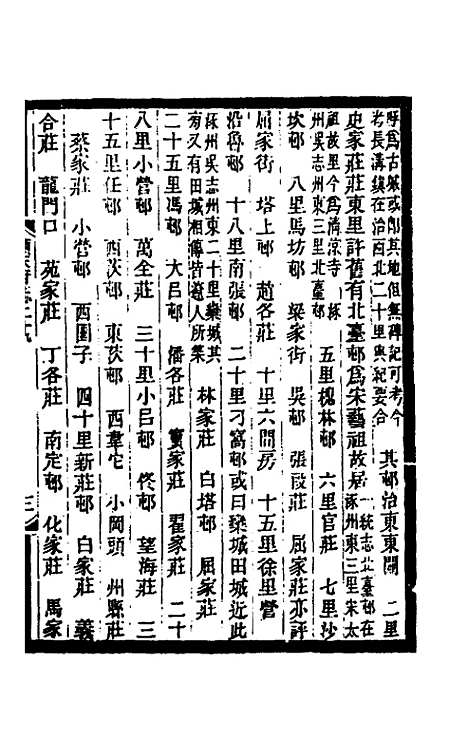 呼爲古城或卽其地但無碑記可考今
考長溝鎮在治西北二十里與紀要合
其邨治東東關　二里
史家莊莊東里許舊有北臺邨爲宋藝祖故居
一統志北臺邨在涿州東三里宋太
祖故里今爲清涼寺　涿
州吳志州東三里北臺邨
五里槐林邨　六里官莊　七里沙
坎邨　八里馬坊邨　梁家街　吳邨　張段莊　屈家莊亦評
屈家街　塔上邨　趙各莊　十里六間房　十五里徐里營
沿魯邨　十八里南張邨　二十里刁窩邨或曰樂城田城近此
涿州吳志州東二十里藥城其
旁又有田城相傳皆遼人所築
林家莊　白塔邨　屈家莊
二十五里馮邨　大呂邨　潘各莊　竇家莊　翟家莊　二十
八里小營邨　萬全莊　三十里小呂邨　佟邨　望海莊　三
十五里任邨　西茨邨　東茨邨　西韋坨　小岡頭　州縣莊
蔡家莊　小營邨　西圍子　四十里新莊邨　白家莊　義
合莊　龍門口　苑家莊　丁各莊　南定邨　化家莊　馬家